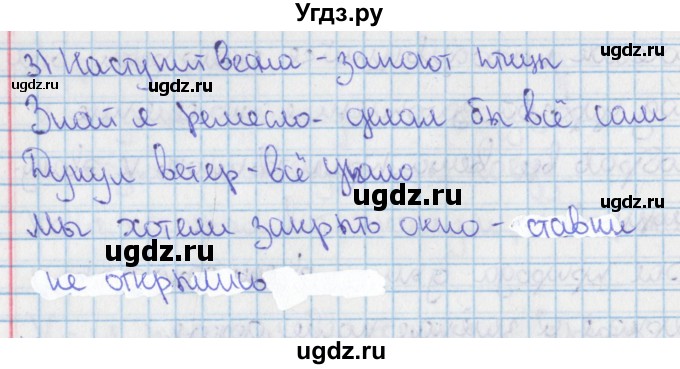 Угдз.ру
3) Наступит весна - запоют птицы
ugdz.ru ugdz.ru
Знай я ремесло - делал бы всё сам
Дунул ветер - всё упало
ugdz.ru
Мы хотели закрыть окно - ставни
ugdz.ru
не открылись
ugdz.ru ugdz.ru
ugdz.ru